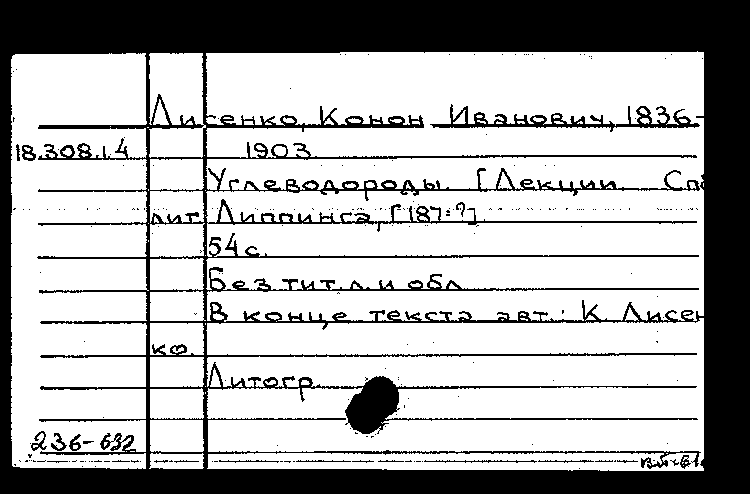 Лисенко, Конон Иванович, 1836-
18.308.1.4 1903.
Углеводороды. [Лекции. Спб
лит. Липпинга, [187-?].
54 с.
Без тит. л. и обл.
В конце текста авт.: К. Лисен
ко.
Литогр.
236-632